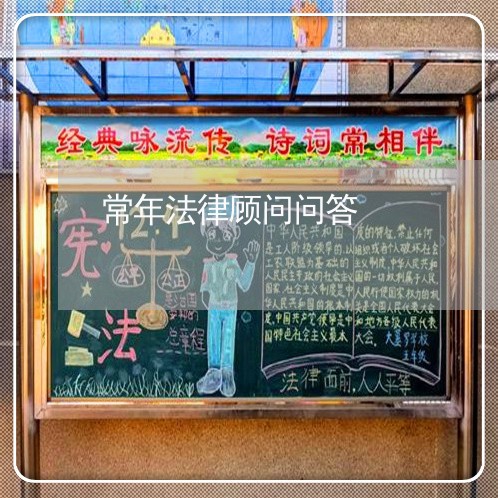 经典咏流传 诗词常相伴
常年法律顾问问答
12.4
宪
法
公平
公正
总章程
中华人民共和国
是工人阶级领导的,以
工农联盟为基础的
人民民主专政的社会主义
国家,社会主义制度是中
华人民共和国的根本制
度,中国共产党领导是中
国特色社会主义最本
质的特征,禁止任何
组织或者个人破坏社会
主义制度,中华人民共和
国的一切权利属于人民,
人民行使国家权力的机
关是全国人民代表大会
和地方各级人民代表
大会。
五年级
法律面前,人人平等